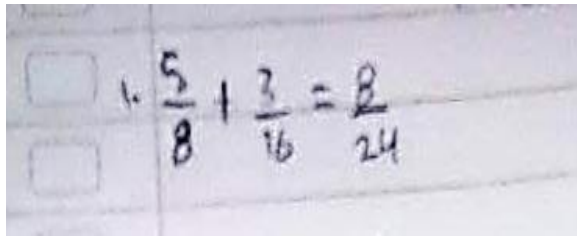 1. 5/8 + 3/16 = 8/24